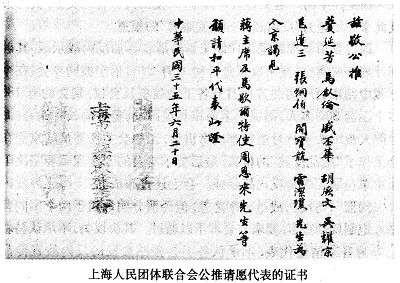 茲敬公推
蕢延芳 馬叙倫 盛丕華 胡厥文 吳耀宗
包達三 張絅伯 閻寶航 雷潔瓊 先生為
入京謁見
蔣主席及馬歇爾特使周恩來先生等
籲請和平代表此證
中華民國三十五年六月二十日
上海人民团体联合会公推请愿代表的证书